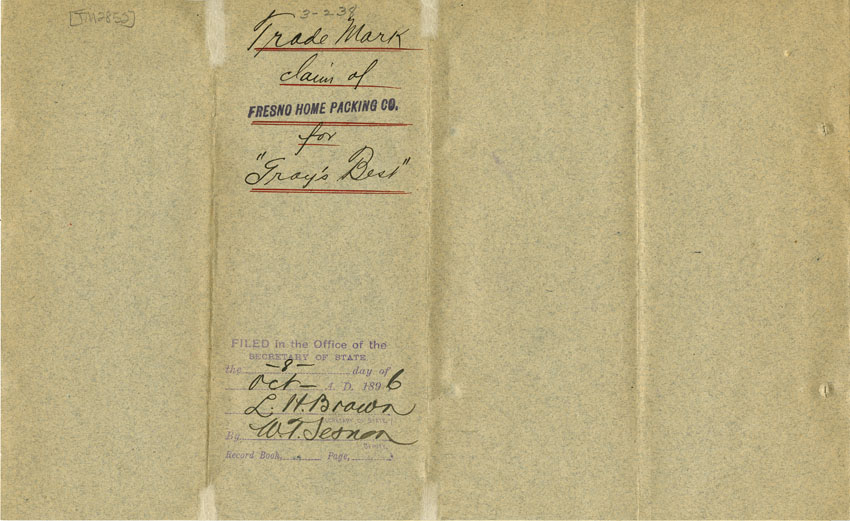 [TM2852]
3-238
Trade Mark
claim of
FRESNO HOME PACKING CO.
for
"Gray's Best"
FILED in the Office of the
SECRETARY OF STATE
the -8- day of
Oct- A. D. 1896
L. H. Brown
SECRETARY OF STATE
By W. T. Sesnon
DEPUTY
Record Book, Page,